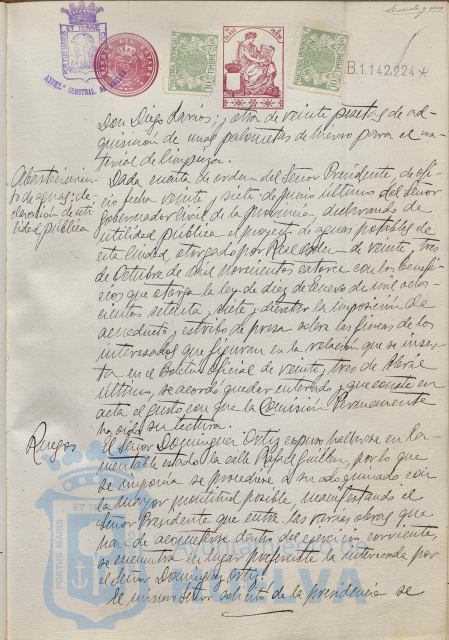 B.1.142.224*
Don Diego Larios; y otra de veinte pesetas de ad-
quisición de unas palometas de hierro para el ma-
terial de limpieza.
Abastecimien-
to de aguas: de-
claración de uti-
lidad pública
Dada cuenta de orden del Señor Presidente, de ofi-
cio fecha veinte y siete de Junio último del Señor
Gobernador Civil de la provincia, declarando de
utilidad pública el proyecto de aguas potables de
esta Ciudad otorgado por Real orden de veinte y tres
de Octubre de mil novecientos catorce con los benefi-
cios que otorga la ley de diez de Enero de mil ocho-
cientos setenta y siete, y decretar la imposición de
acueducto y estribo de presa sobre las fincas de los
interesados que figuran en la relación que se inser-
ta en el Boletín Oficial de veinte y tres de Abril
último, se acordó quedar enterado y que conste en
acta el gusto con que la Comisión Permanente
ha oído su lectura.
Ruegos
El Señor Dominguez Ortiz expuso hallarse en la-
mentable estado la calle Rafael Guillén, por lo que
se imponía se procediese a su adoquinado con
la mayor prontitud posible, manifestando el
Señor Presidente que entre las varias obras que
han de acometerse dentro del ejercicio corriente,
se encuentra en lugar preferente la interesada por
el Señor Dominguez Ortiz.
El mismo Señor solicitó de la presidencia se